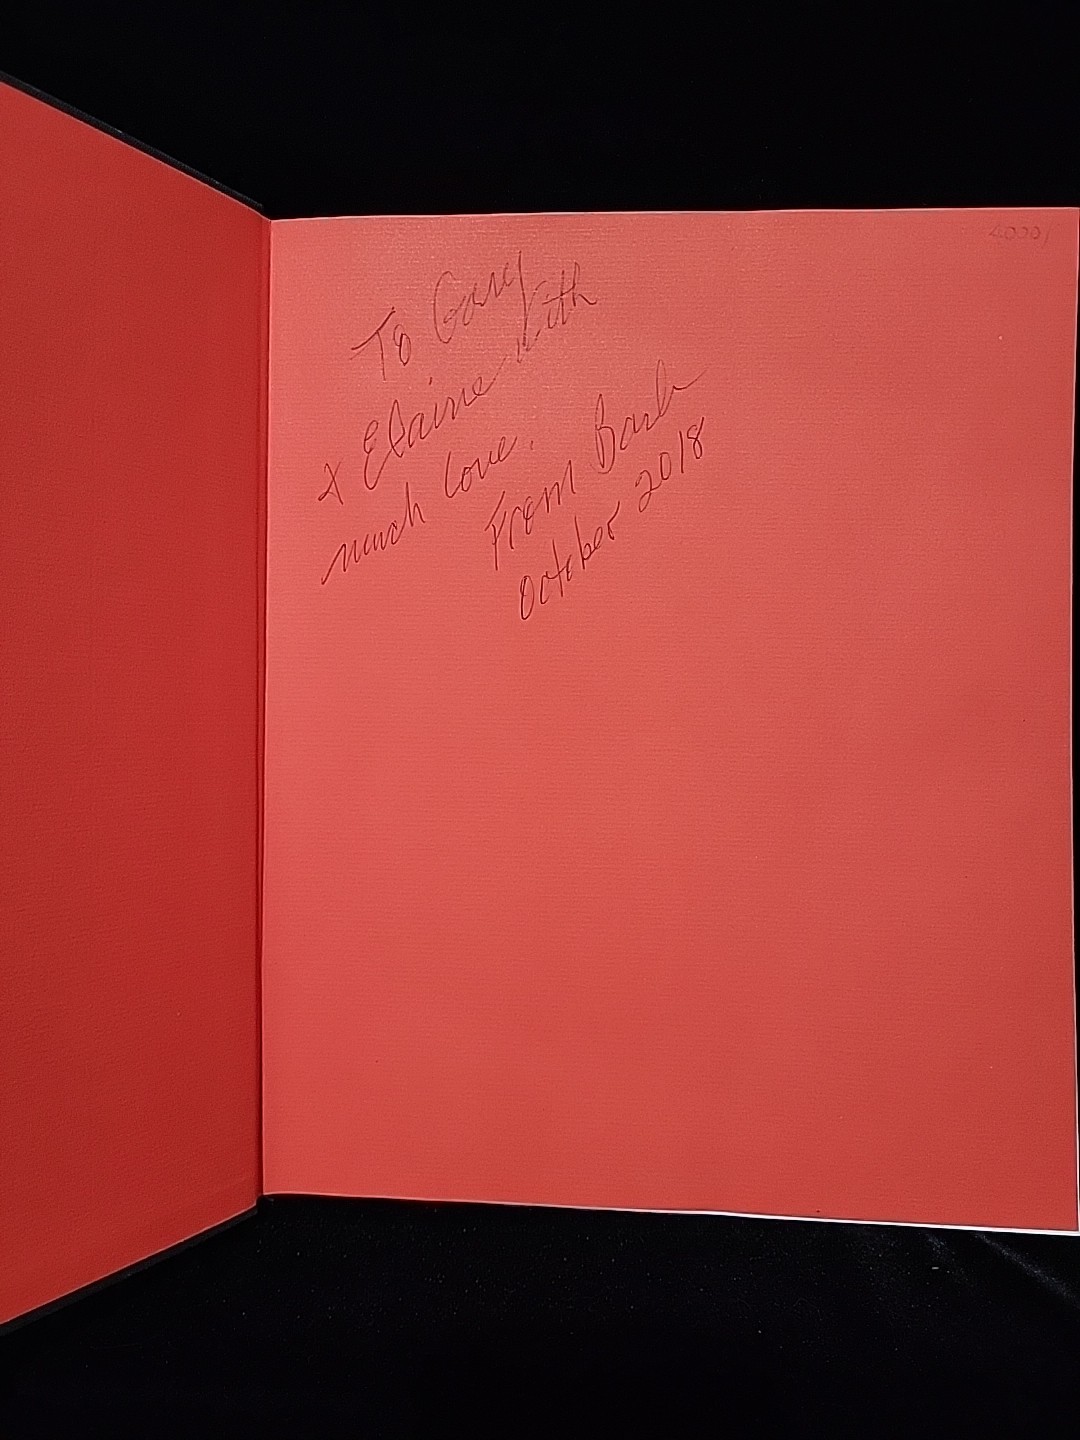 To Gary
+ Elaine with
much love.
From Barb
October 2018